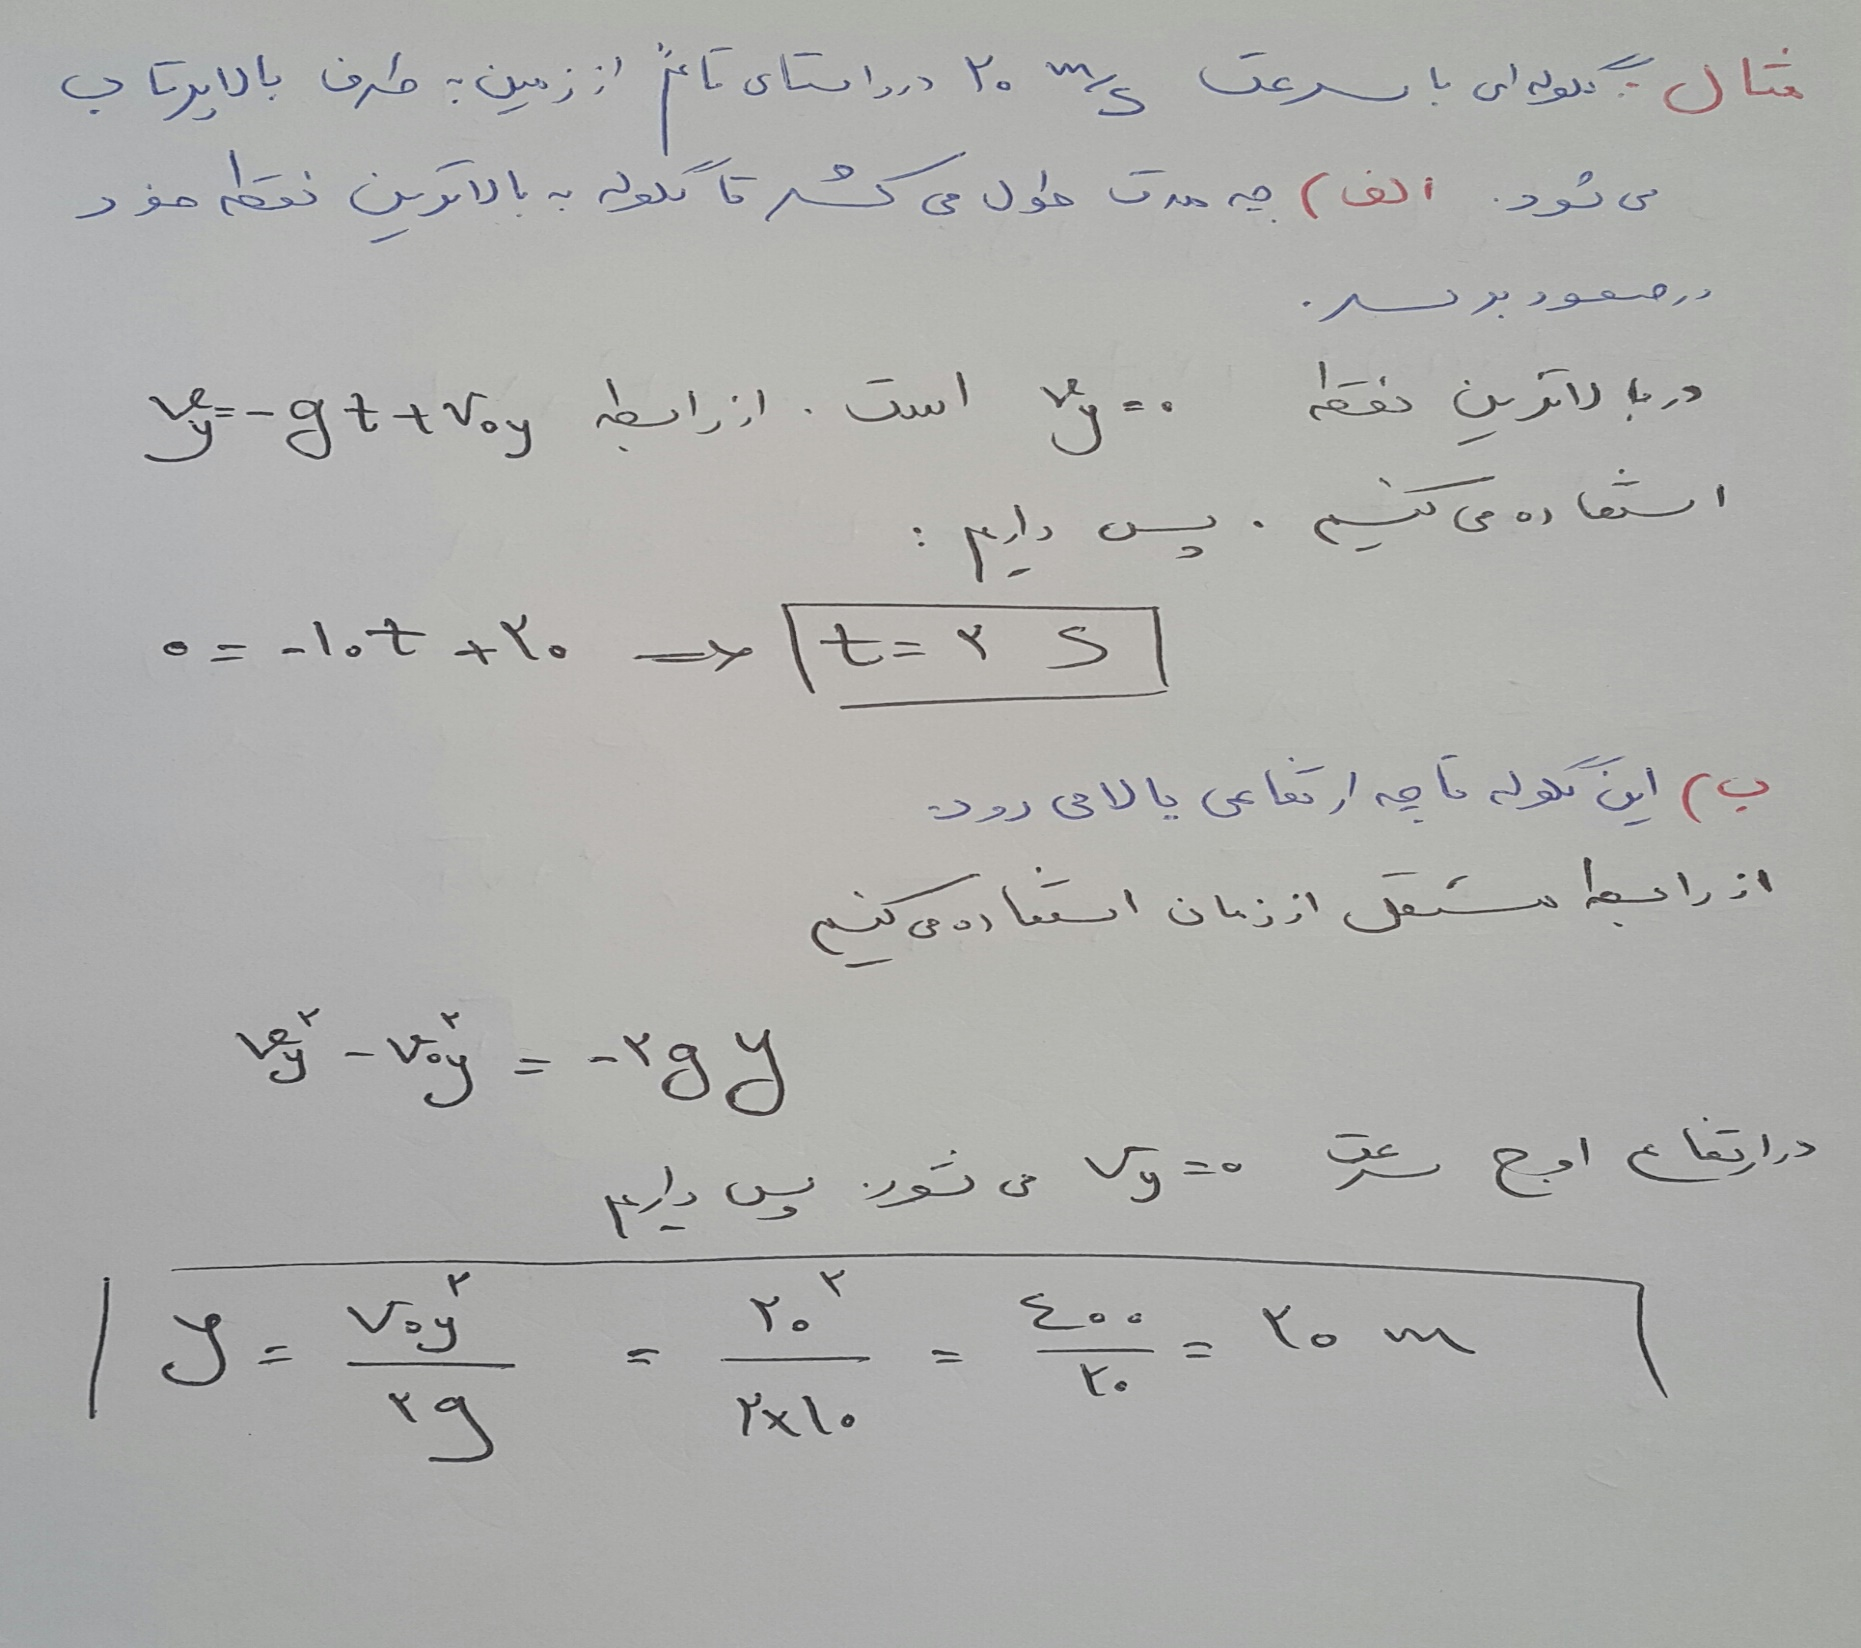 مثال : گلوله ای با سرعت ۲۰ m/s در راستای قائم از زمین به طرف بالا پرتاب
می شود. الف) چه مدت طول می کشد تا گلوله به بالاترین نقطه خود
در صعود برسد.
در بالاترین نقطه vy=۰ است. از رابطه vy=-gt+v₀y
استفاده می کنیم. پس داریم:
۰ = -۱۰t + ۲۰ ⇒ t = ۲ s
ب) این گلوله تا چه ارتفاعی بالا می رود.
از رابطه مستقل از زمان استفاده می کنیم
vy² - v₀y² = -۲gy
در ارتفاع اوج سرعت vy=۰ می شود. پس داریم
y = v₀y²/۲g = ۲۰²/۲×۱۰ = ۴۰۰/۲۰ = ۲۰ m